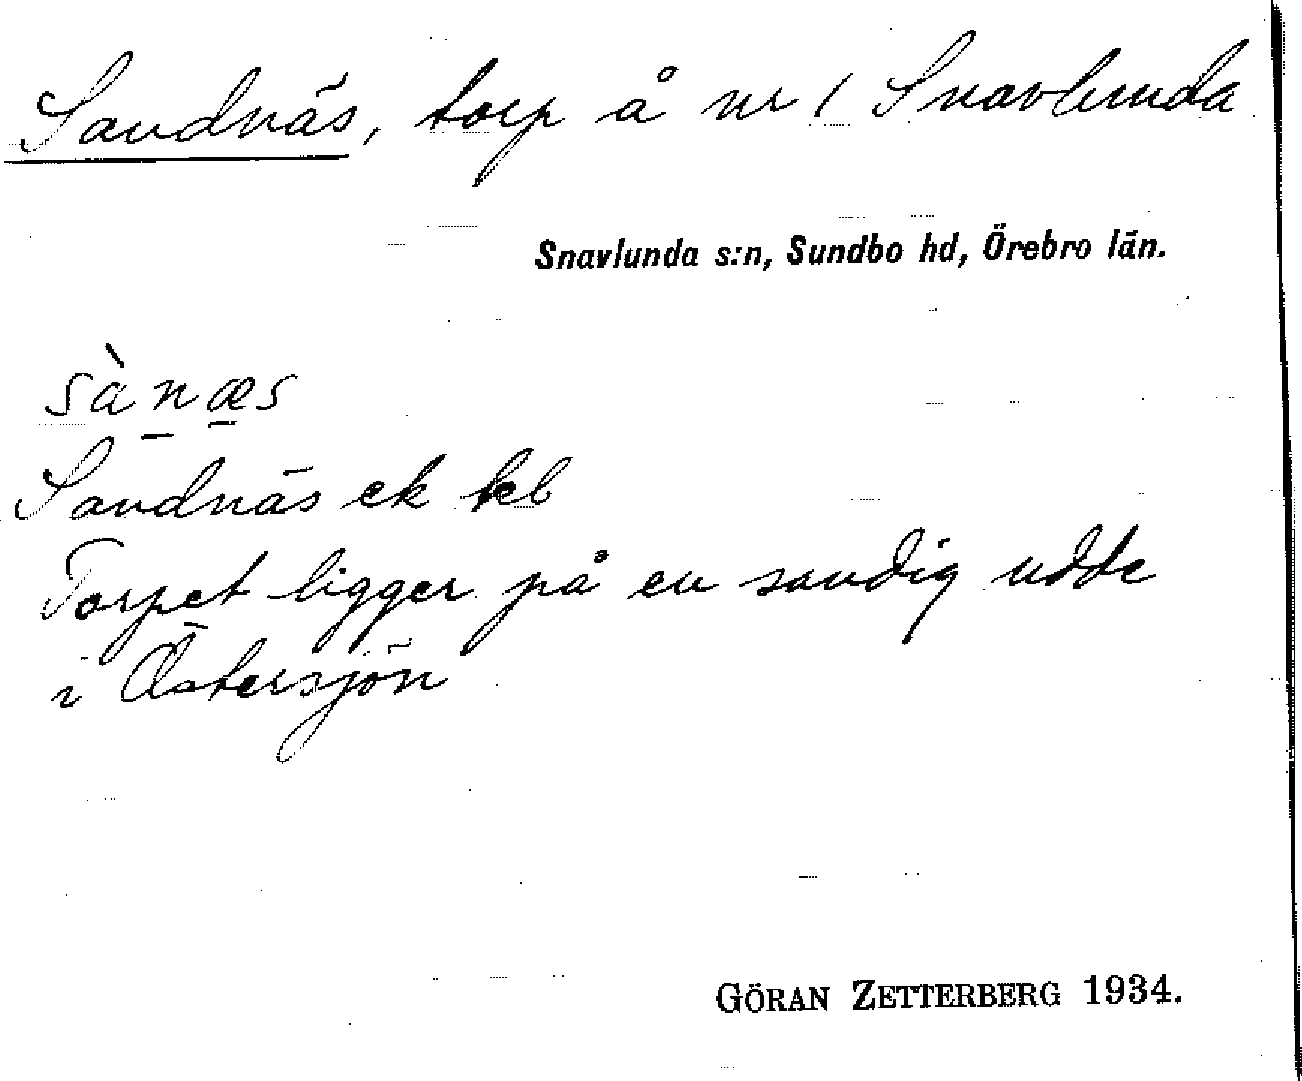 Sandnäs, torp å nr 1 Snavlunda
Snavlunda s:n, Sundbo hd, Örebro län.
sànæs
Sandnäs ek kbl
Torpet ligger på en sandig udde
i Östersjön
GÖRAN ZETTERBERG 1934.